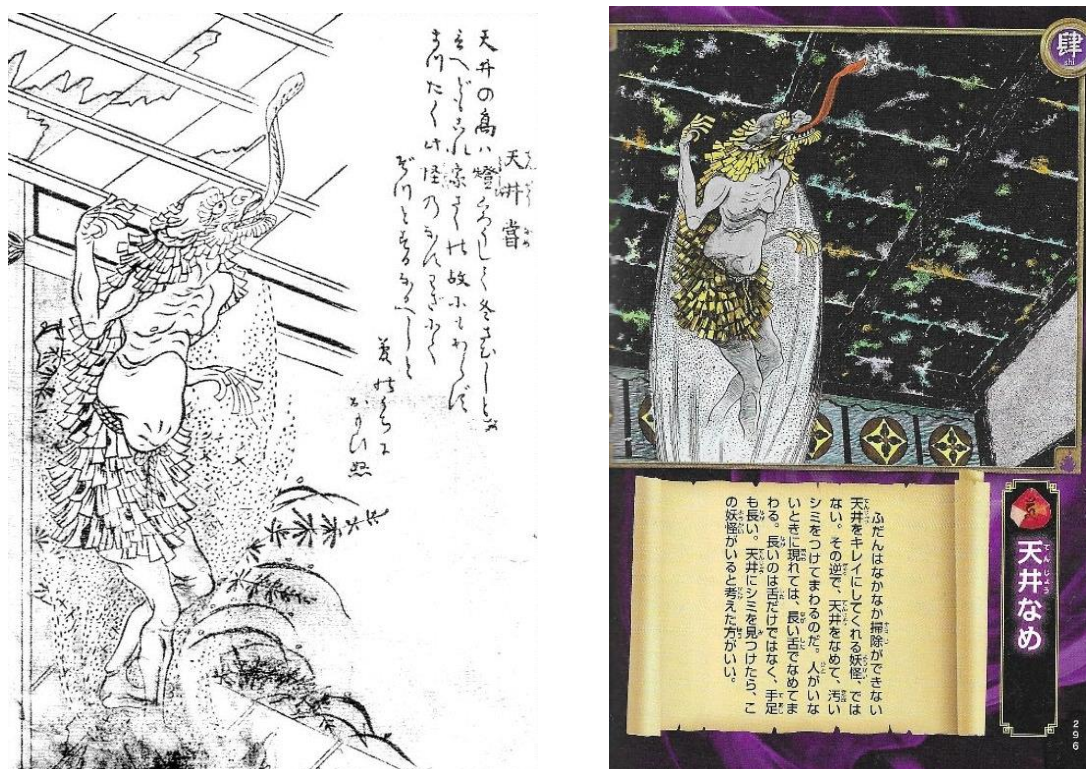 天井嘗
天井の高ハ燈くらうして冬さむしと
言へどもこれ家さくの故にもあらず
まつたく此怪のなすわざにて
ぞつとするなるべしと
夢のうちに
おもひぬ
肆
shi
天井なめ
ふだんはなかなか掃除ができない
天井をキレイにしてくれる妖怪、では
ない。その逆で、天井をなめて、汚い
シミをつけてまわるのだ。人がいな
いときに現れては、長い舌でなめてま
わる。長いのは舌だけではなく、手足
も長い。天井にシミを見つけたら、こ
の妖怪がいると考えた方がいい。
296